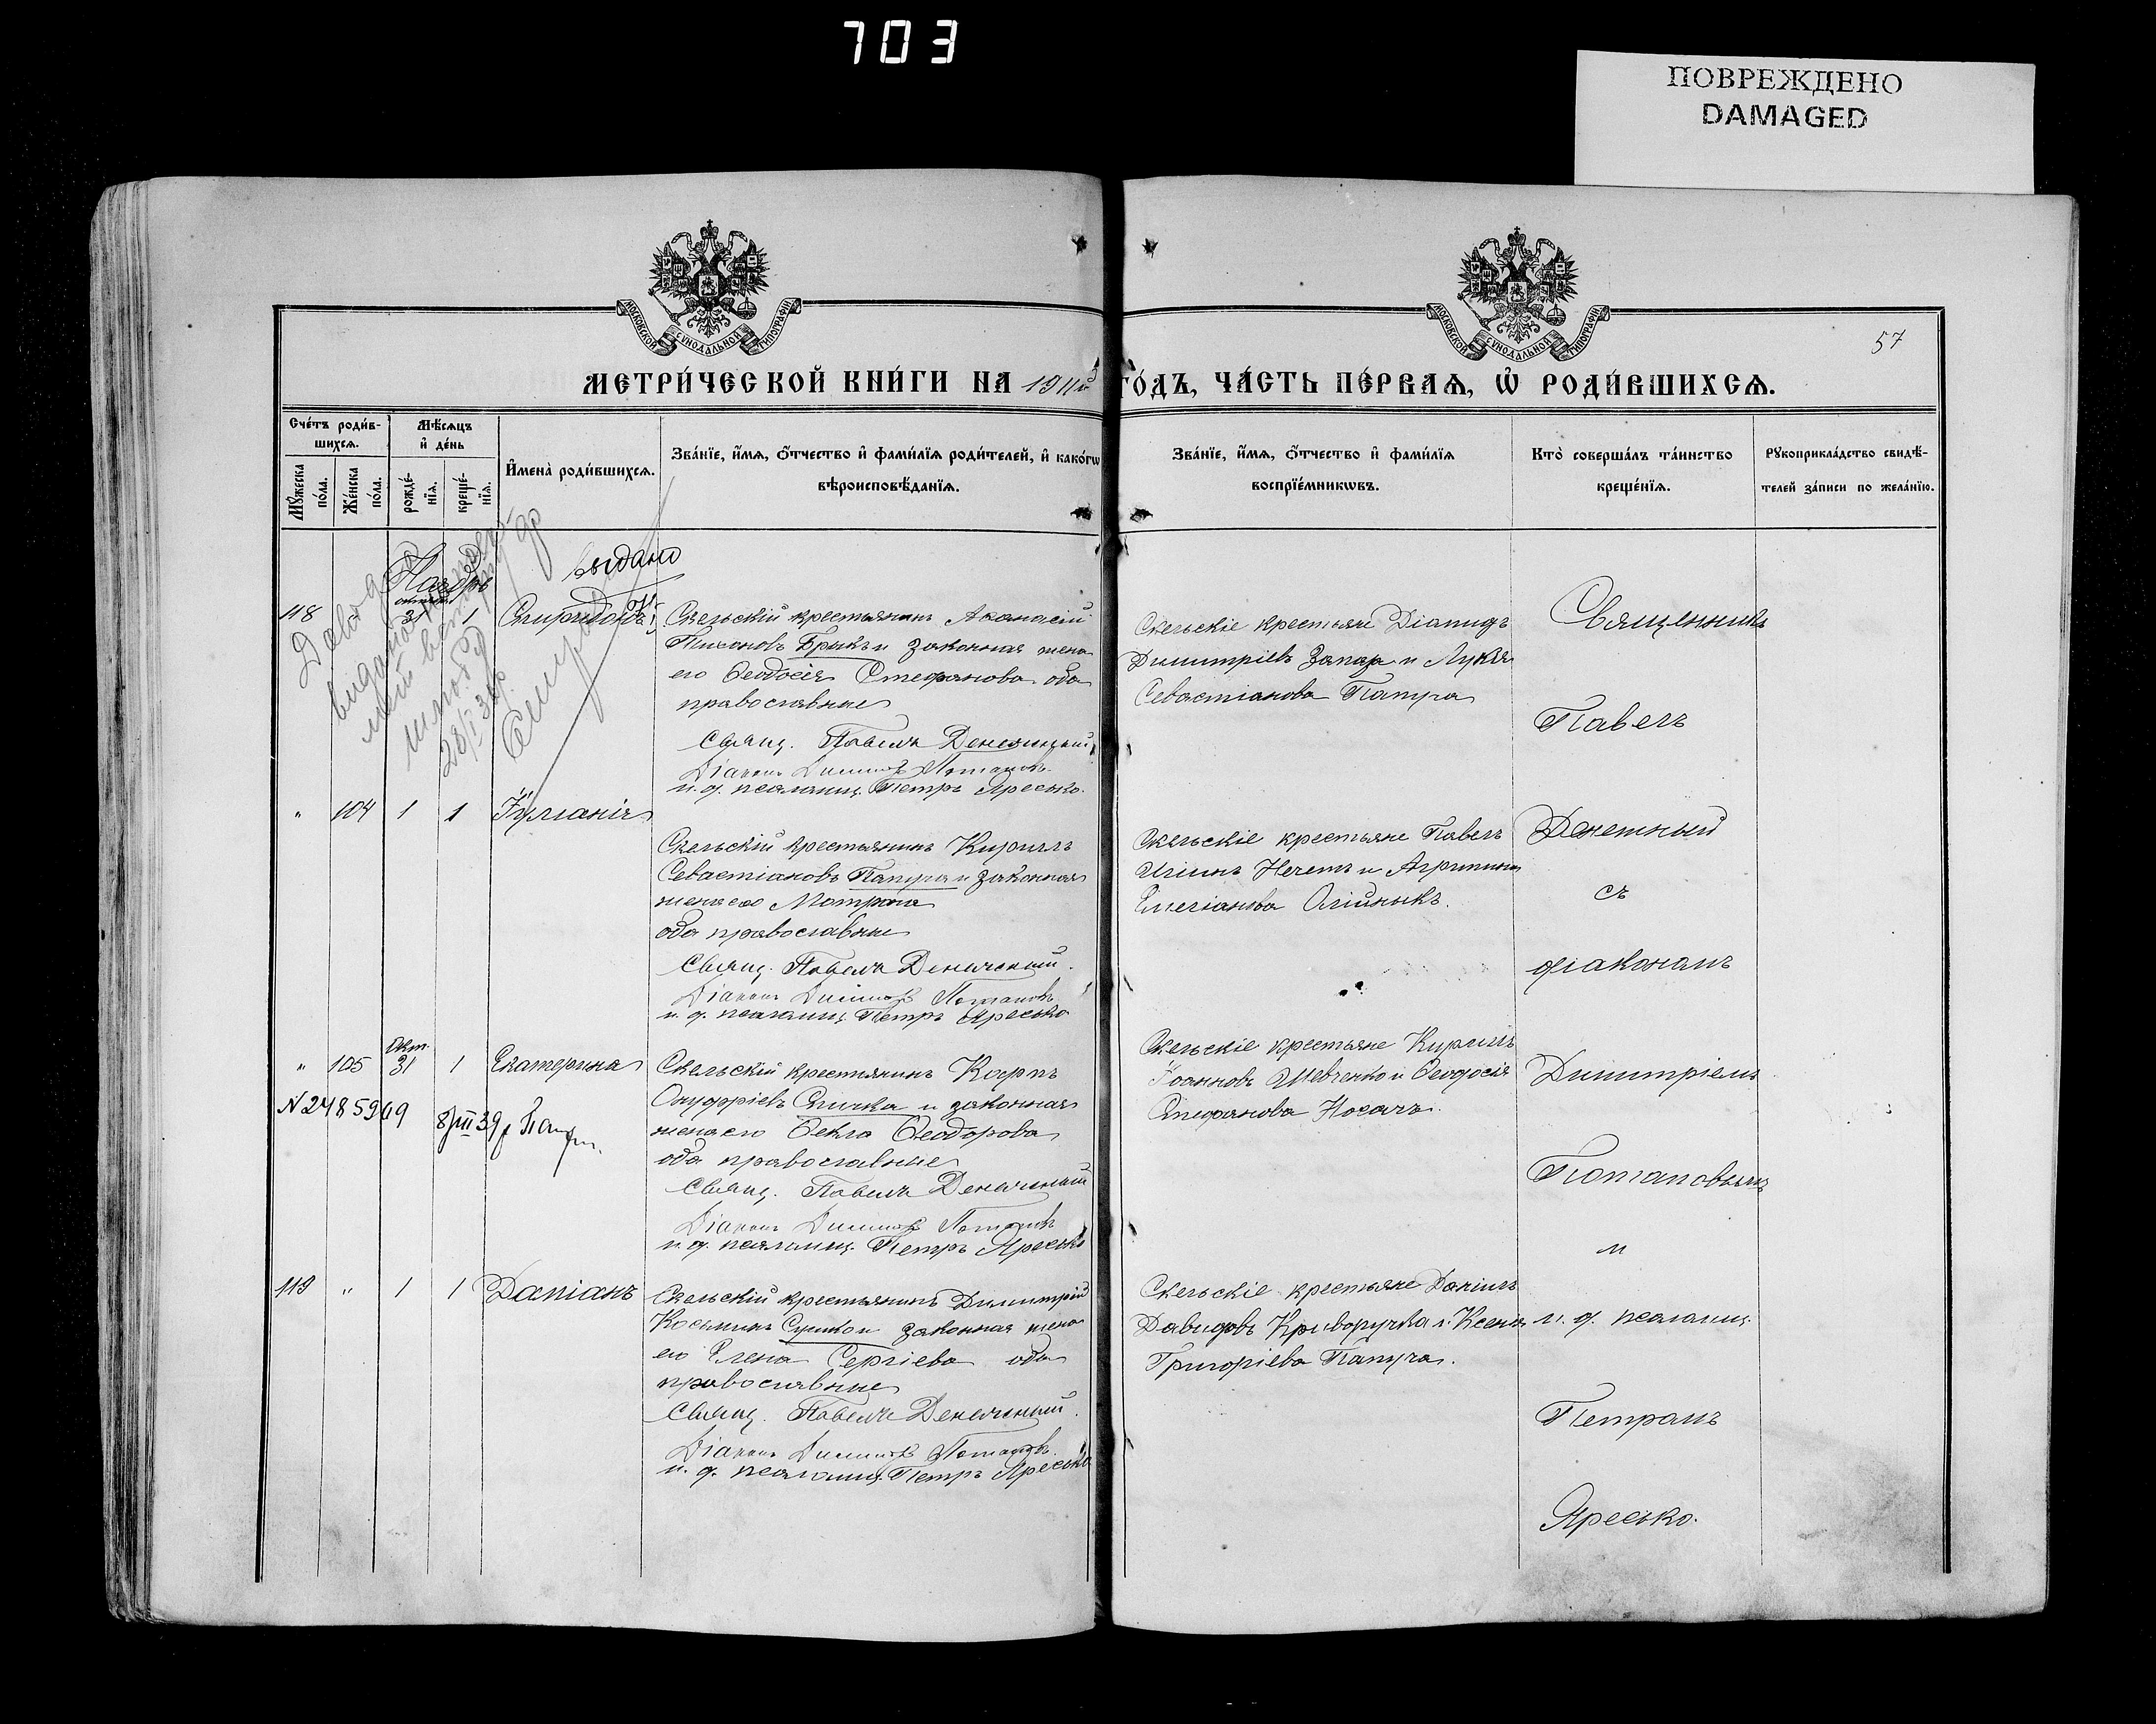 703
ПОВРЕЖДЕНО
DAMAGED
МОСКОВСКОЙ СѴНОДАЛЬНОЙ ТИПОГРАФІИ
МОСКОВСКОЙ СѴНОДАЛЬНОЙ ТИПОГРАФІИ
57
МЕТРИ́ЧЕСКОЙ КНИ́ГИ НА 191
ГО́ДЪ, ЧА́СТЬ ПЕ́РВАѦ, Ѡ҆ РОДИ́ВШИХСѦ.
Сче́тъ роди́в-
шихсѧ.
Мѣ́сѧцъ
и҆ де́нь
Мꙋ́жеска
по́ла.
Же́нска
по́ла.
рожде́-
нїѧ.
креще́-
нїѧ.
И҆мена̀ роди́вшихсѧ.
Зва́нїе, и҆́мѧ, ѻ҆́тчество и҆ фами́лїѧ роди́телей, и҆ како́гѡ
вѣроисповѣ́данїѧ.
Зва́нїе, и҆́мѧ, ѻ҆́тчество и҆ фами́лїѧ
воспрїе́мникѡвъ.
Кто̀ соверша́лъ та́инство
креще́нїѧ.
Рꙋкоприкла́дство свидѣ́-
телей за́писи по жела́нїю.
выдано
Ноябрь
118 31 1 Спиридонъ
Скельскій крестьянинъ Аѳанасій
Тихоновъ Брыкъ и законная жена
его Ѳеодосія Стефанова оба
православные
Свящ. Павелъ
Діаконъ Димитр. Потаповъ
и. д. псаломщ. Петръ Яресько.
Скельскіе крестьяне Діамидъ
Димитріевъ Запара и Лукія
Севастіанова Папуга
Священникъ
Павелъ
28/I 3
" 104 1 1 Іуліанія
Скельскій крестьянинъ Кириллъ
Севастіановъ Папуга и законная
жена его Матрона
оба православные
Свящ. Павелъ
Діаконъ Димитр. Потаповъ
и. д. псаломщ. Петръ Яресько
Скельскіе крестьяне Павелъ
Иліинъ Нечетъ и Агрипина
Емеліанова Олійныкъ.
съ
діакономъ
" 105 Окт. 31 1 Екатерина
Скельскій крестьянинъ Карпъ
Онуфріевъ Спичка и законная
жена его Ѳекла Ѳеодорова
оба православные
Свящ. Павелъ
Діаконъ Димитр. Потаповъ
и. д. псаломщ. Петръ Яресько
Скельскіе крестьяне Кириллъ
Іоанновъ Шевченко и Ѳеодосія
Стефанова Носачъ.
Димитріемъ
N 2485969 8/III 39
Потаповымъ
и
119 " 1 1 Даміанъ
Скельскій крестьянинъ Димитрій
Косьминъ Сушко и законная жена
его Елена Сергіева оба
православные
Свящ. Павелъ
Діаконъ Димитр. Потаповъ.
и. д. псаломщ. Петръ Яресько
Скельскіе крестьяне Даніилъ
Давидовъ Криворучка и Ксенія
Григоріева Папуга.
и. д. псаломщ.
Петромъ
Яресько.